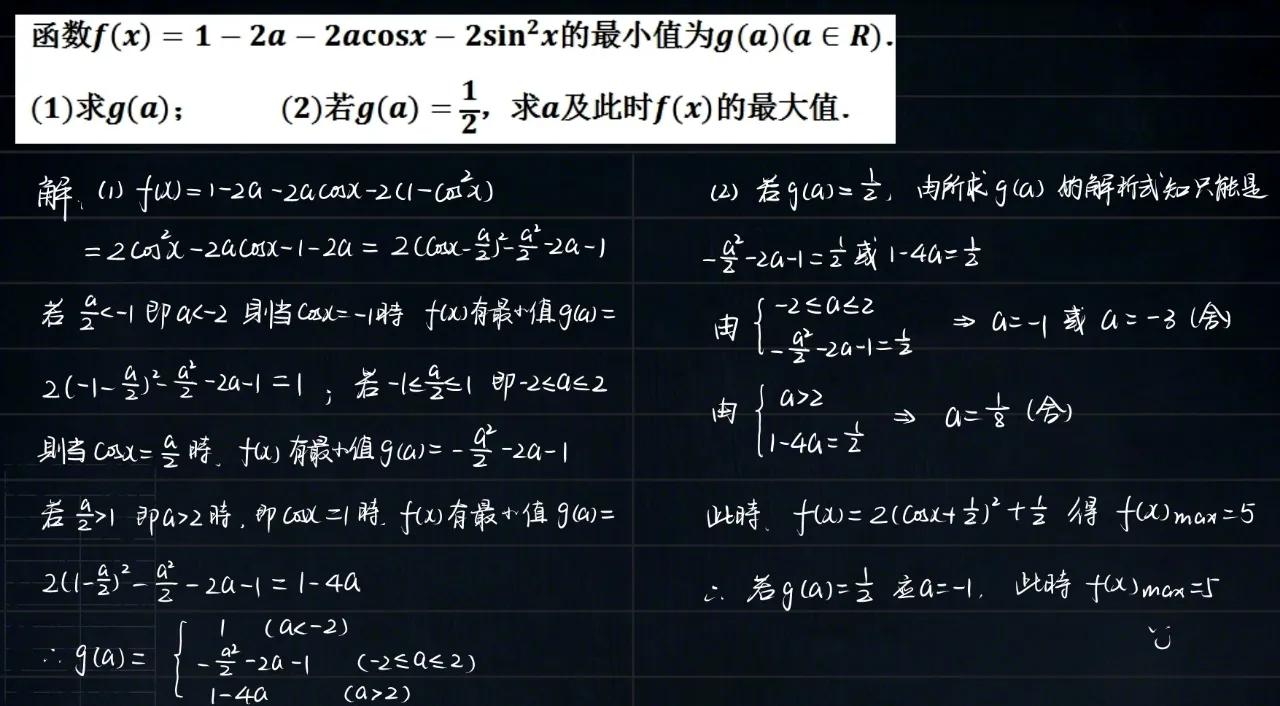 函数f(x) = 1 − 2a − 2acosx − 2sin²x的最小值为g(a)(a ∈ R).
(1)求g(a); (2)若g(a) = 1/2, 求a及此时f(x)的最大值.
解. (1) f(x)=1-2a-2acosx-2(1-cos²x)
=2cos²x-2acosx-1-2a = 2(cosx-a/2)²-a²/2-2a-1
若 a/2<-1 即a<-2 則当cosx=-1時 f(x)有最小值g(a)=
2(-1-a/2)²-a²/2-2a-1=1 ; 若-1≤a/2≤1 即-2≤a≤2
則当cosx=a/2時. f(x)有最小值g(a)=-a²/2-2a-1
若a/2>1 即a>2時, 即cosx=1時. f(x)有最小值g(a)=
2(1-a/2)²-a²/2-2a-1=1-4a
∴ g(a)= { 1 (a<-2)
-a²/2-2a-1 (-2≤a≤2)
1-4a (a>2)
(2) 若g(a)=1/2, 由所求g(a)的解析式知只能是
-a²/2-2a-1=1/2或1-4a=1/2
由 { -2≤a≤2
-a²/2-2a-1=1/2 ⇒ a=-1 或 a=-3 (舍)
由 { a>2
1-4a=1/2 ⇒ a=1/8 (舍)
此時. f(x)=2(cosx+1/2)²+1/2 得 f(x)max=5
∴ 若g(a)=1/2 应a=-1. 此時 f(x)max=5